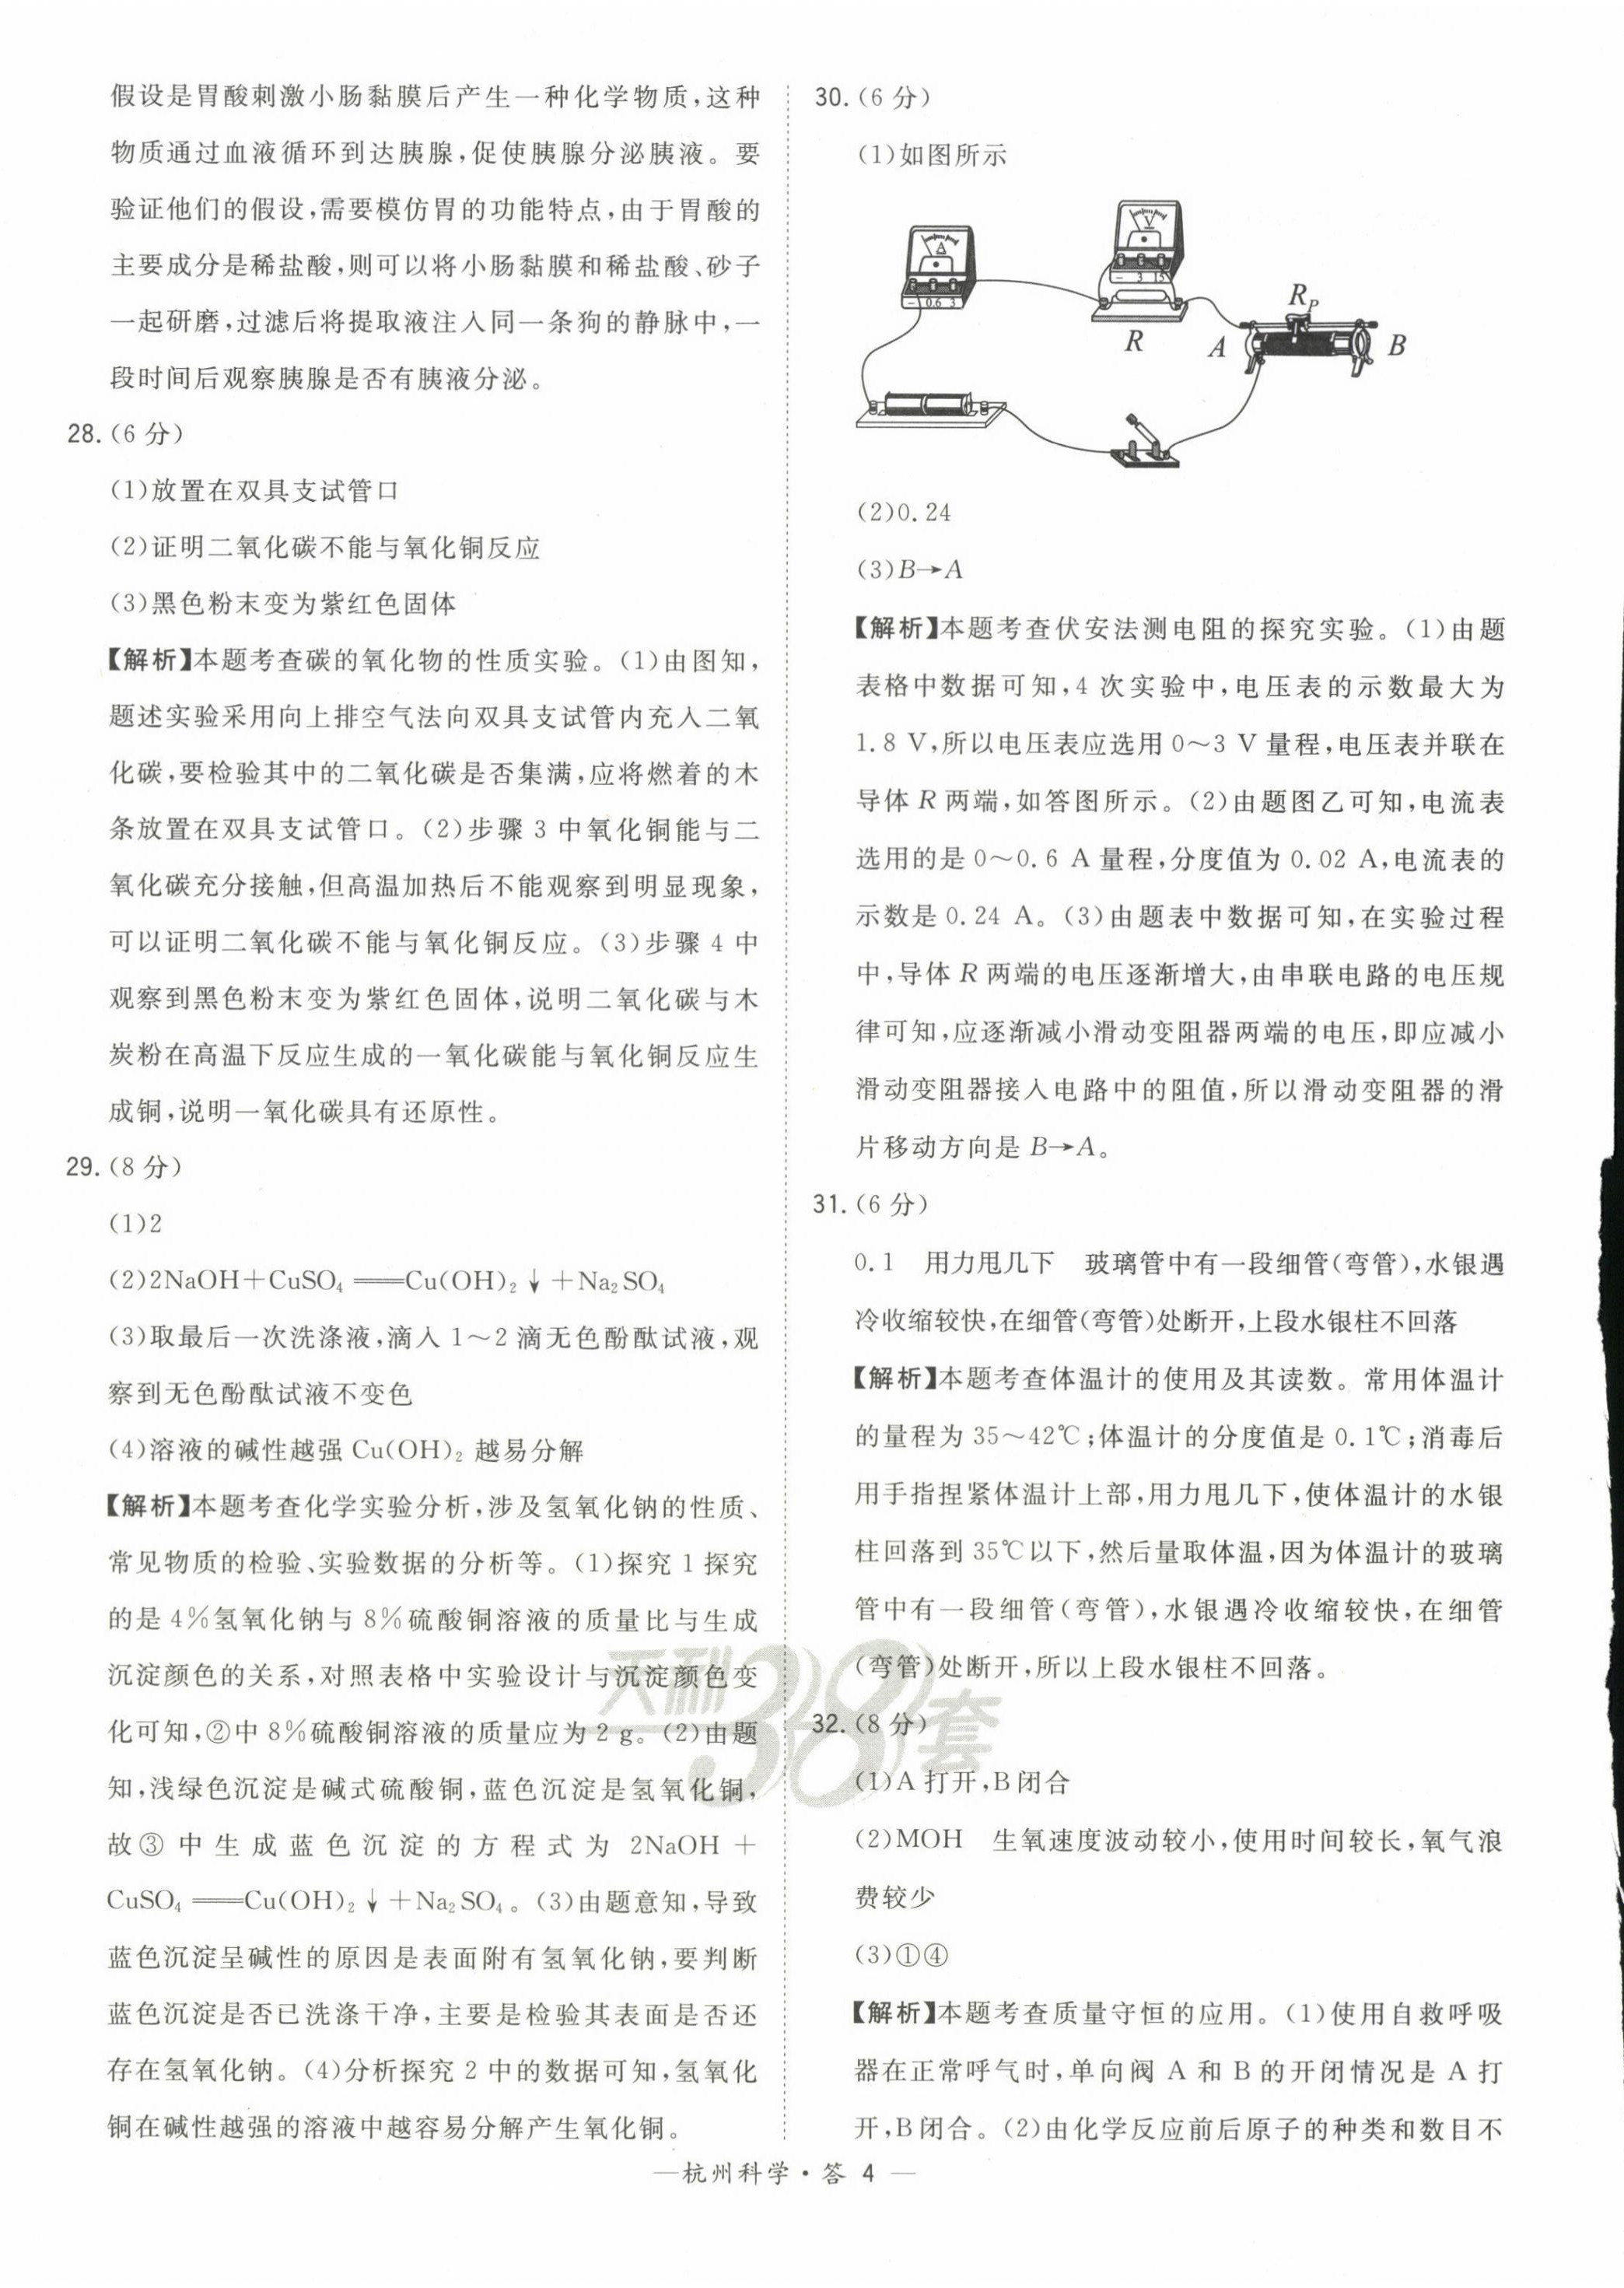 假设是胃酸刺激小肠黏膜后产生一种化学物质,这种
物质通过血液循环到达胰腺,促使胰腺分泌胰液。要
验证他们的假设,需要模仿胃的功能特点,由于胃酸的
主要成分是稀盐酸,则可以将小肠黏膜和稀盐酸、砂子
一起研磨,过滤后将提取液注入同一条狗的静脉中,一
段时间后观察胰腺是否有胰液分泌。
28.(6分)
(1)放置在双具支试管口
(2)证明二氧化碳不能与氧化铜反应
(3)黑色粉末变为紫红色固体
【解析】本题考查碳的氧化物的性质实验。(1)由图知,
题述实验采用向上排空气法向双具支试管内充入二氧
化碳,要检验其中的二氧化碳是否集满,应将燃着的木
条放置在双具支试管口。(2)步骤3中氧化铜能与二
氧化碳充分接触,但高温加热后不能观察到明显现象,
可以证明二氧化碳不能与氧化铜反应。(3)步骤4中
观察到黑色粉末变为紫红色固体,说明二氧化碳与木
炭粉在高温下反应生成的一氧化碳能与氧化铜反应生
成铜,说明一氧化碳具有还原性。
29.(8分)
(1)2
(2)2NaOH+CuSO₄══Cu(OH)₂↓+Na₂SO₄
(3)取最后一次洗涤液,滴入1～2滴无色酚酞试液,观
察到无色酚酞试液不变色
(4)溶液的碱性越强Cu(OH)₂越易分解
【解析】本题考查化学实验分析,涉及氢氧化钠的性质、
常见物质的检验、实验数据的分析等。(1)探究1探究
的是4%氢氧化钠与8%硫酸铜溶液的质量比与生成
沉淀颜色的关系,对照表格中实验设计与沉淀颜色变
化可知,②中8%硫酸铜溶液的质量应为2 g。(2)由题
知,浅绿色沉淀是碱式硫酸铜,蓝色沉淀是氢氧化铜,
故③中生成蓝色沉淀的方程式为2NaOH+
CuSO₄══Cu(OH)₂↓+Na₂SO₄。(3)由题意知,导致
蓝色沉淀呈碱性的原因是表面附有氢氧化钠,要判断
蓝色沉淀是否已洗涤干净,主要是检验其表面是否还
存在氢氧化钠。(4)分析探究2中的数据可知,氢氧化
铜在碱性越强的溶液中越容易分解产生氧化铜。
30.(6分)
(1)如图所示
A
- 0.6 3
V
- 3 15
R
R_P
A
B
(2)0.24
(3)B→A
【解析】本题考查伏安法测电阻的探究实验。(1)由题
表格中数据可知,4次实验中,电压表的示数最大为
1.8 V,所以电压表应选用0～3 V量程,电压表并联在
导体R两端,如答图所示。(2)由题图乙可知,电流表
选用的是0～0.6 A量程,分度值为0.02 A,电流表的
示数是0.24 A。(3)由题表中数据可知,在实验过程
中,导体R两端的电压逐渐增大,由串联电路的电压规
律可知,应逐渐减小滑动变阻器两端的电压,即应减小
滑动变阻器接入电路中的阻值,所以滑动变阻器的滑
片移动方向是B→A。
31.(6分)
0.1 用力甩几下 玻璃管中有一段细管(弯管),水银遇
冷收缩较快,在细管(弯管)处断开,上段水银柱不回落
【解析】本题考查体温计的使用及其读数。常用体温计
的量程为35～42℃;体温计的分度值是0.1℃;消毒后
用手指捏紧体温计上部,用力甩几下,使体温计的水银
柱回落到35℃以下,然后量取体温,因为体温计的玻璃
管中有一段细管(弯管),水银遇冷收缩较快,在细管
(弯管)处断开,所以上段水银柱不回落。
32.(8分)
(1)A打开,B闭合
(2)MOH 生氧速度波动较小,使用时间较长,氧气浪
费较少
(3)①④
【解析】本题考查质量守恒的应用。(1)使用自救呼吸
器在正常呼气时,单向阀A和B的开闭情况是A打
开,B闭合。(2)由化学反应前后原子的种类和数目不
天利38套
—杭州科学·答 4 —